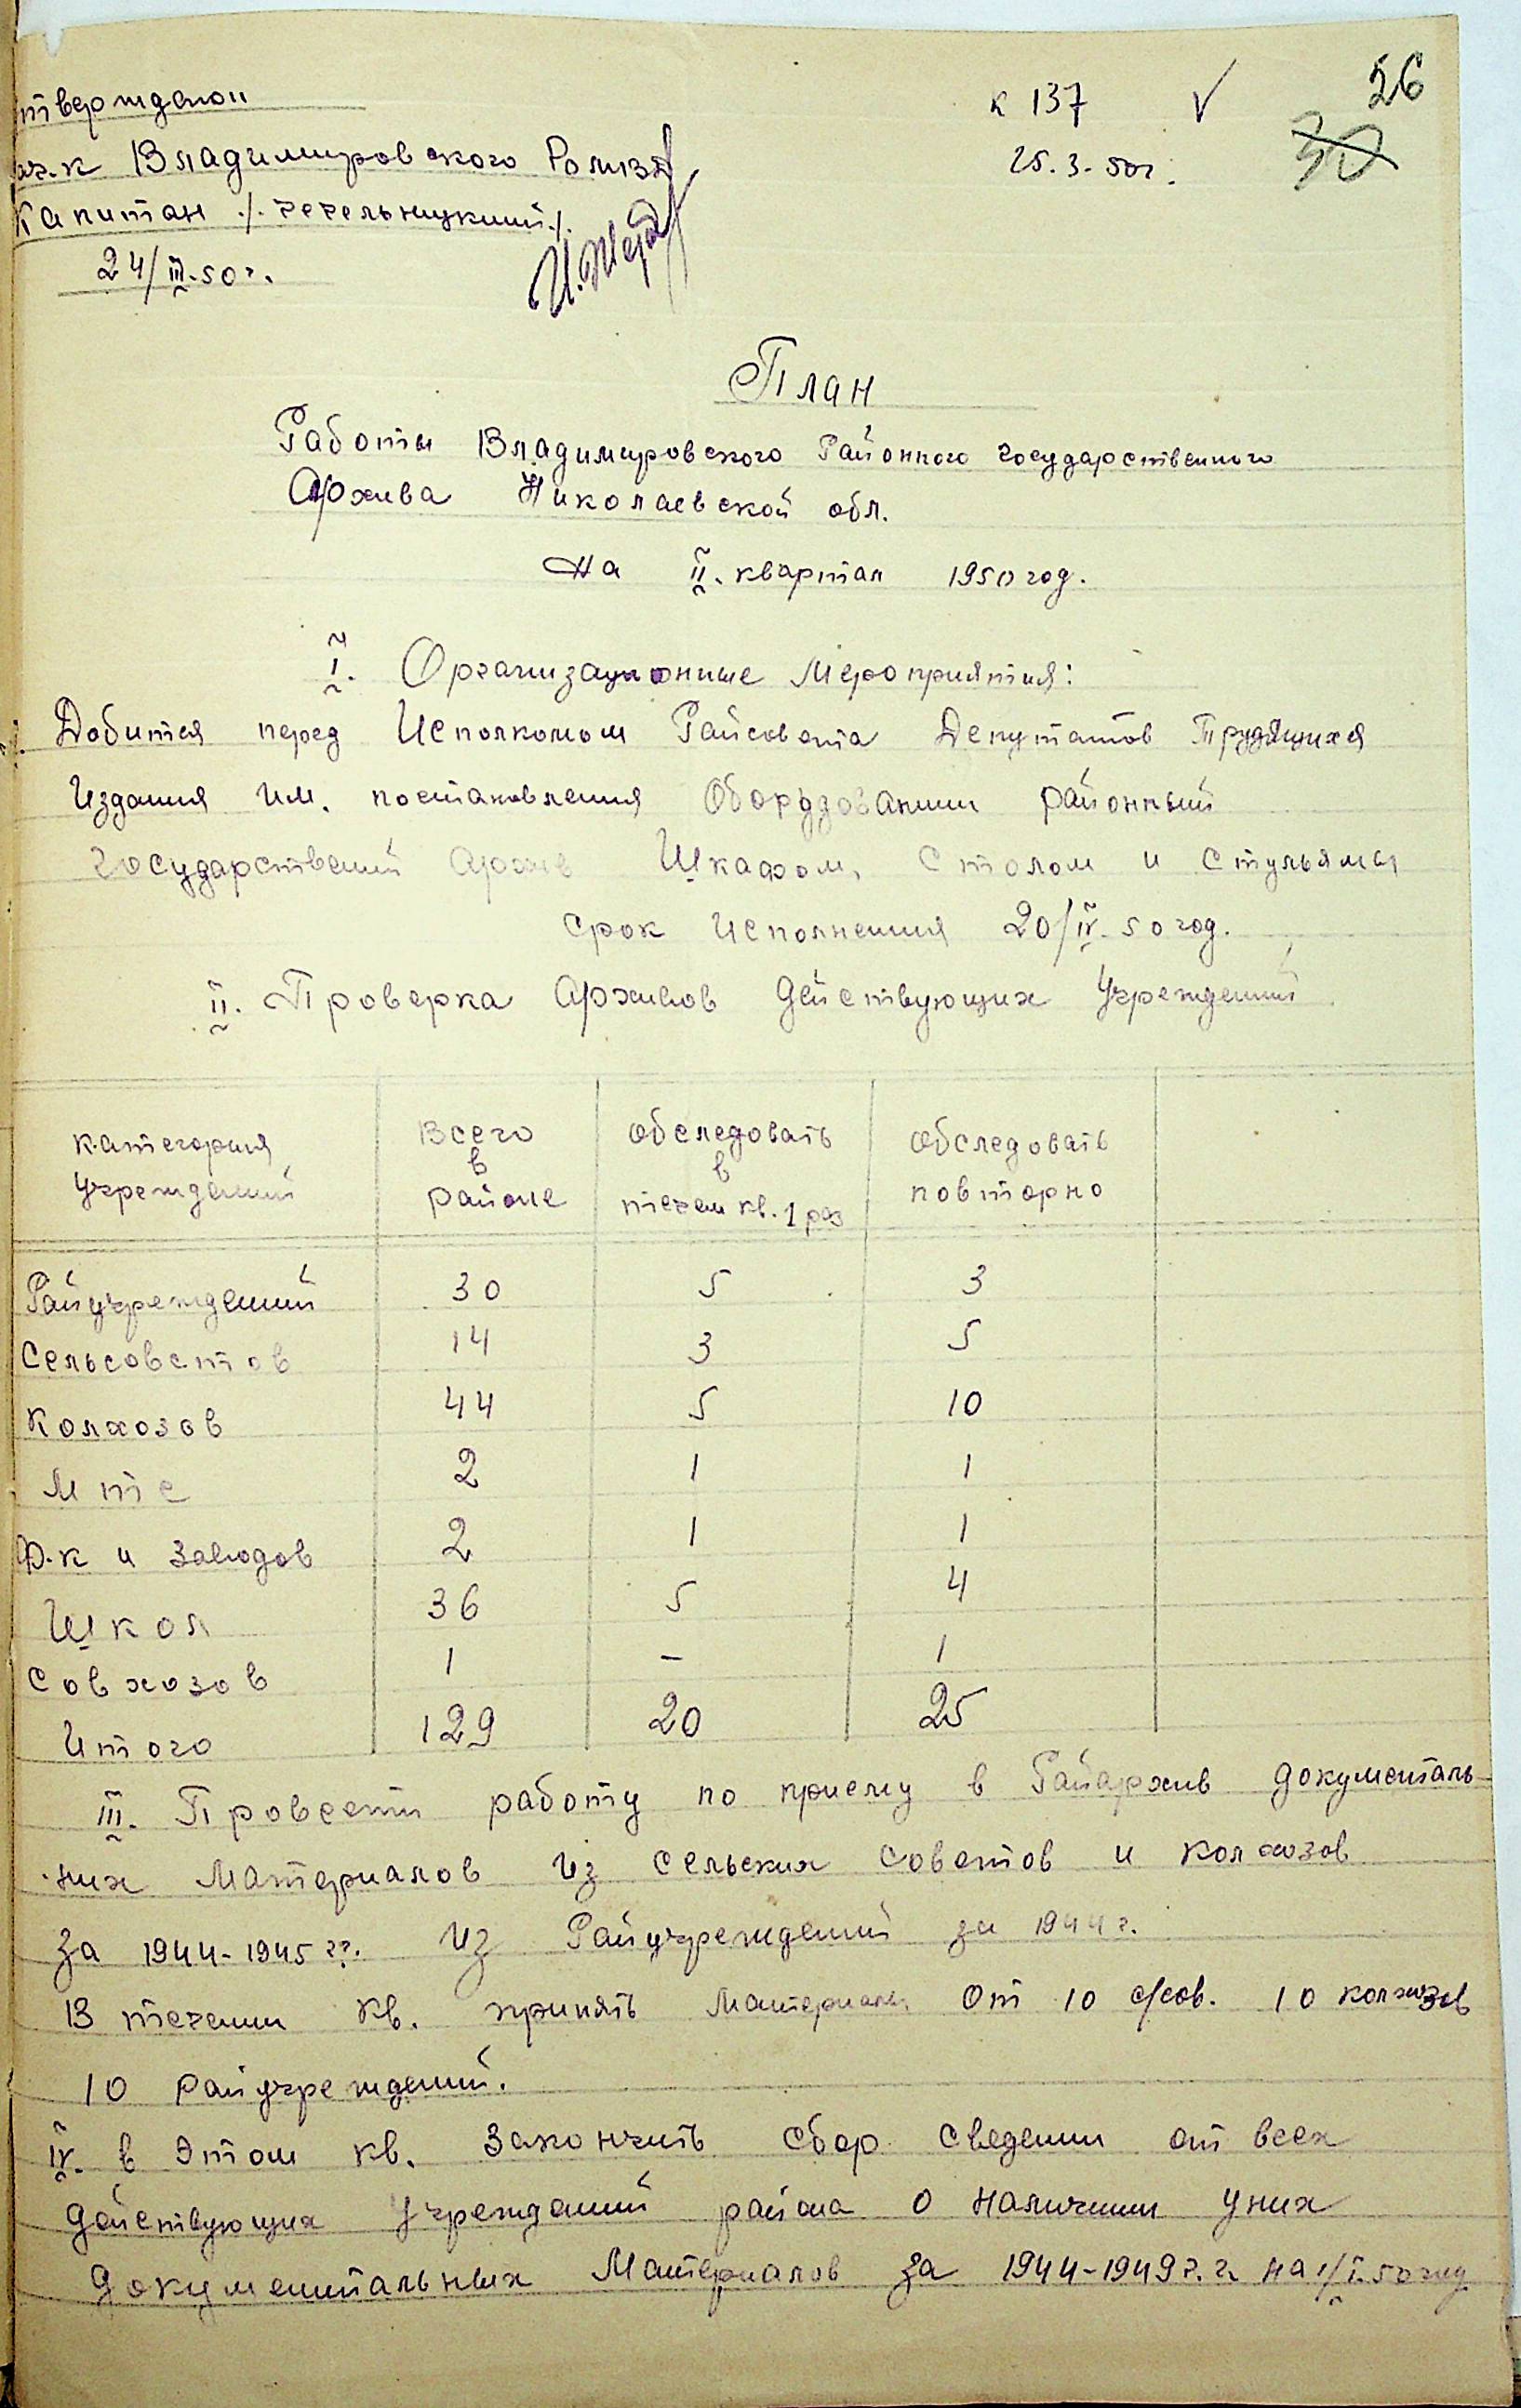 тверждаю
нач.к Владимировского Ро
Капитан /. Чечельницкий./.
24/III-50 г.
к 137 V 26
25.3.50г.
План
Работы Владимировского Районного государственного
Архива Николаевской обл.
На II. квартал 1950 год.
I. Организационные Мероприятия:
Добится перед Исполкомом Райсовета Депутатов Трудящихся
Издания им. постановления Оборудовании районный
государственный архив Шкафом, столом и стульями
срок исполнения 20/IV-50 год.
II. Проверка архивов действующих учреждений
категория учреждений | Всего в районе | обследовать в течен кв. 1 раз | обследовать повторно
Райучреждений 30 5 3
Сельсоветов 14 3 5
Колхозов 44 5 10
Мтс 2 1 1
Ф-к и заводов 2 1 1
Школ 36 5 4
Совхозов 1 - 1
Итого 129 20 25
III. Провести работу по приему в Райархив документаль-
них материалов из сельских советов и колхозов
за 1944-1945 гг. из Райучреждений за 1944 г.
В течении кв. принять материалы от 10 с/сов. 10 колхозов
10 райучреждений.
IV. в этом кв. закончить сбор сведении от всех
действующих учреждений района о наличии у них
документальных материалов за 1944-1949 г.г. на 1/I-50 год